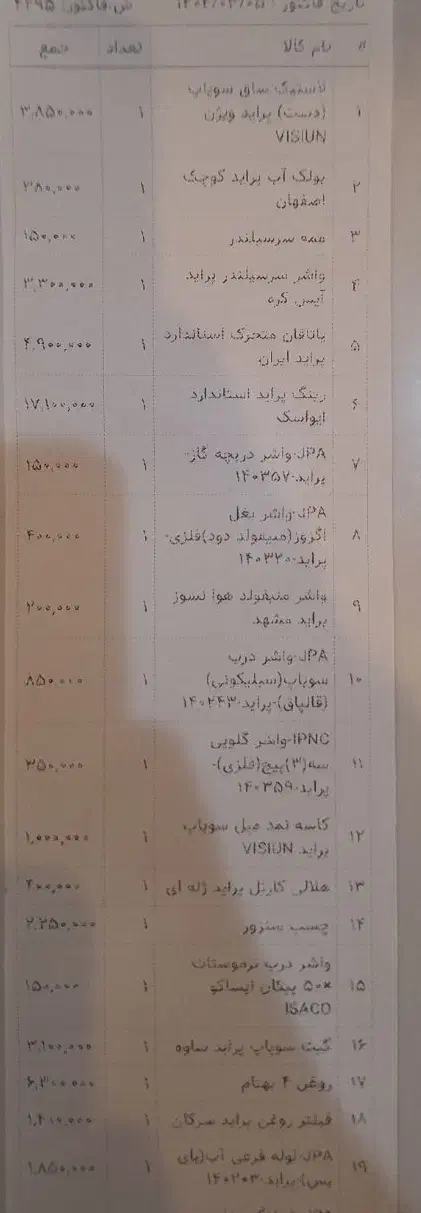 تاریخ فاکتور : ۱۴۰۴/۰۳/۰۵
ش.فاکتور: ۲۴۹۵
# نام کالا تعداد جمع
۱ لاستیک ساق سوپاپ
(دست) پراید ویژن
VISIUN ۱ ۳,۸۵۰,۰۰۰
۲ پولک آب پراید کوچک
اصفهان ۱ ۳۸۰,۰۰۰
۳ مهه سرسیلندر ۱ ۱۵۰,۰۰۰
۴ واشر سرسیلندر پراید
آیس کره ۱ ۳,۳۰۰,۰۰۰
۵ یاتاقان متحرک استاندارد
پراید ایران ۱ ۴,۹۰۰,۰۰۰
۶ رینگ پراید استاندارد
ایواسک ۱ ۱۷,۱۰۰,۰۰۰
۷ JPA-واشر دریچه گاز-
پراید-۱۴۰۳۵۷ ۱ ۱۵۰,۰۰۰
۸ JPA-واشر بغل
اگزوز(منیفولد دود)فلزی-
پراید-۱۴۰۳۲۰ ۱ ۴۰۰,۰۰۰
۹ واشر منیفولد هوا نسوز
پراید مشهد ۱ ۲۰۰,۰۰۰
۱۰ JPA-واشر درب
سوپاپ(سیلیکونی)
(قالپاق)-پراید-۱۴۰۲۴۳ ۱ ۸۵۰,۰۰۰
۱۱ IPNC-واشر گلویی
سه(۳)پیچ(فلزی)-
پراید-۱۴۰۳۵۹ ۱ ۳۵۰,۰۰۰
۱۲ کاسه نمد میل سوپاپ
پراید VISIUN ۱ ۱,۰۰۰,۰۰۰
۱۳ هلالی کارتل پراید ژله ای ۱ ۲۰۰,۰۰۰
۱۴ چسب سنزور ۱ ۲,۲۵۰,۰۰۰
۱۵ واشر درب ترموستات
۵۰x پیکان ایساکو
ISACO ۱ ۱۵۰,۰۰۰
۱۶ گیت سوپاپ پراید ساوه ۱ ۳,۱۰۰,۰۰۰
۱۷ روغن ۴ بهنام ۱ ۶,۳۰۰,۰۰۰
۱۸ فیلتر روغن پراید سرکان ۱ ۱,۴۰۰,۰۰۰
۱۹ JPA-لوله فرعی آب(بای
پس)-پراید-۱۴۰۲۰۳ ۱ ۱,۸۵۰,۰۰۰